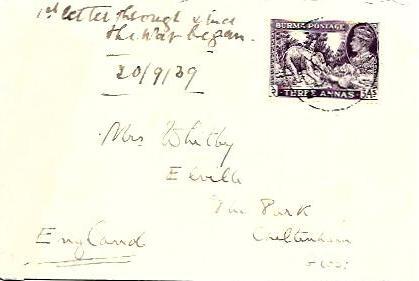 1st letter through since
the war began.
20/9/39
BURMA POSTAGE
3As
THREE ANNAS
Mrs Whitby
Elville
The Park
Cheltenham
England